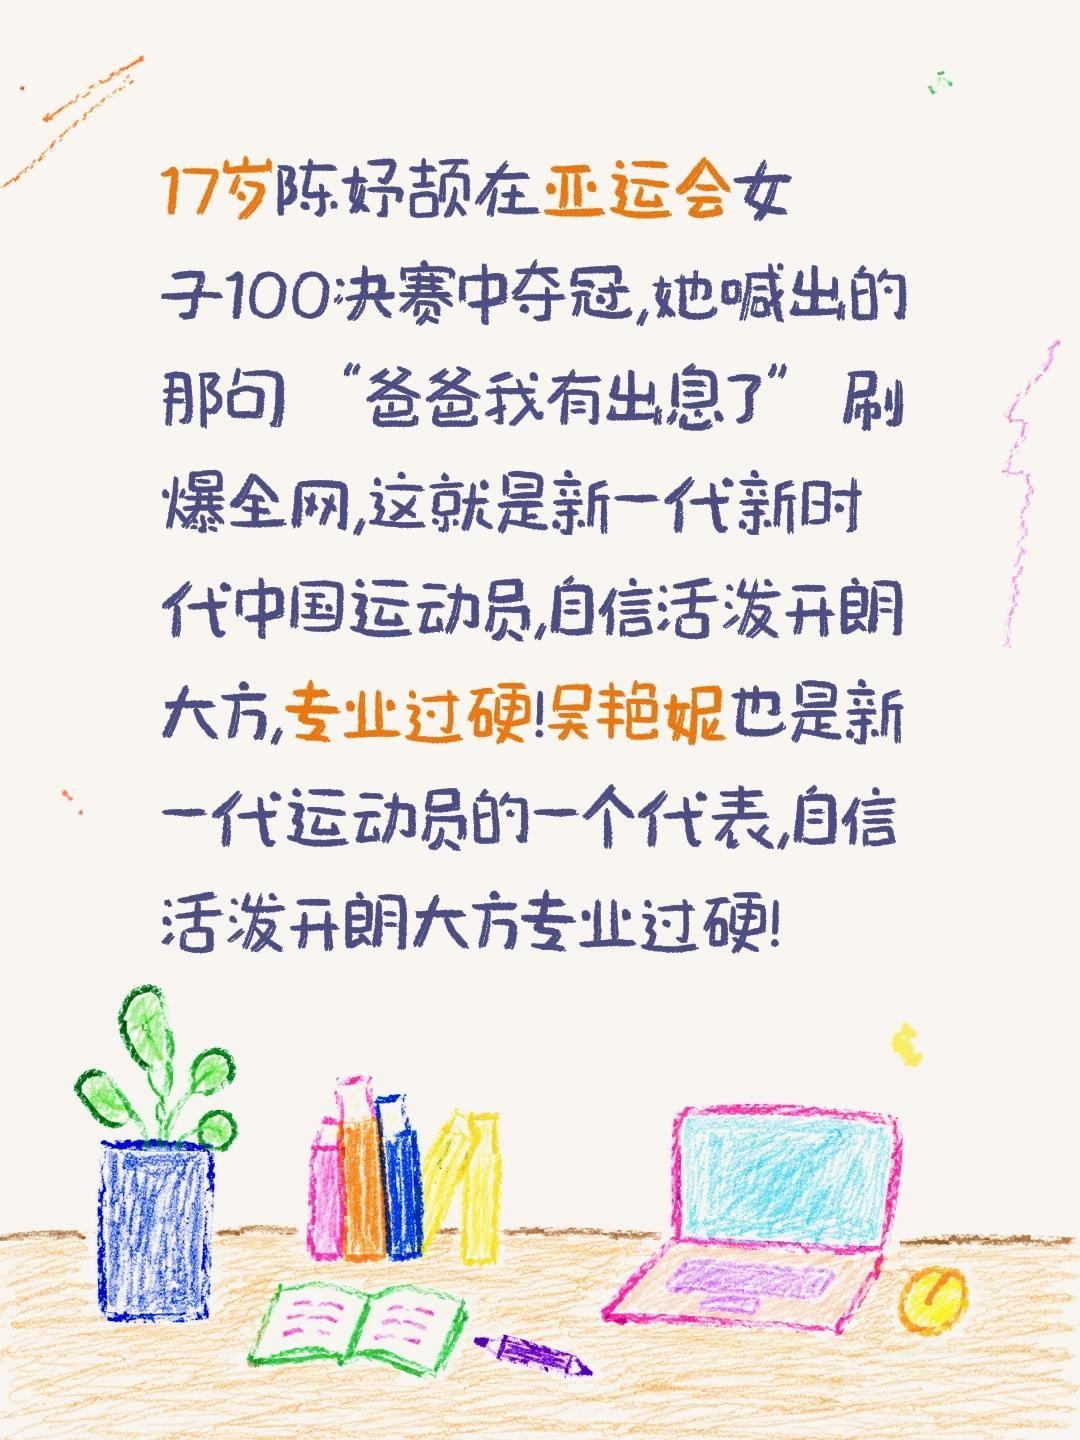 17岁陈妤颉在亚运会女
子100决赛中夺冠,她喊出的
那句 “爸爸我有出息了” 刷
爆全网,这就是新一代新时
代中国运动员,自信活泼开朗
大方,专业过硬!吴艳妮也是新
一代运动员的一个代表,自信
活泼开朗大方专业过硬!